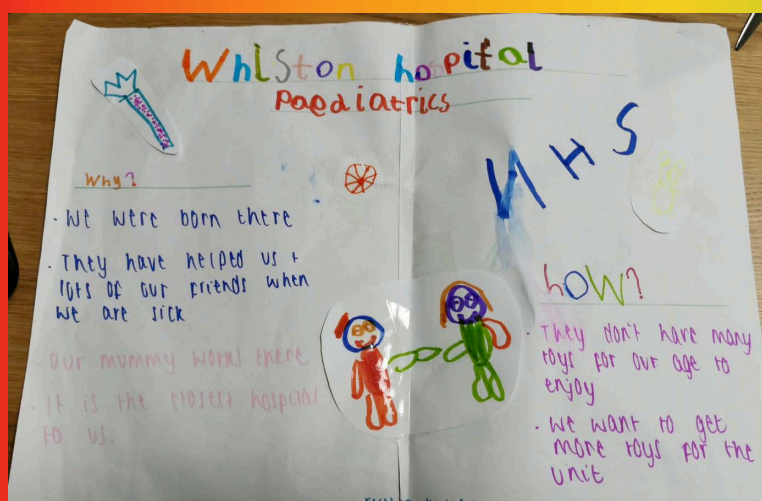 Whiston hospital
Paediatrics
NHS
Why?
· We were born there
· They have helped us +
lots of our friends when
we are sick
· Our mummy works there
· It is the closest hospital
to us.
how?
· They don't have many
toys for our age to
enjoy
· We want to get
more toys for the
unit